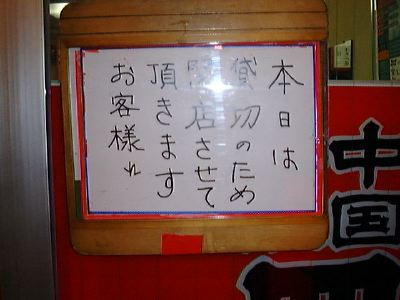 本日は
貸切のため
閉店させて
頂きます
お客様れ
中国